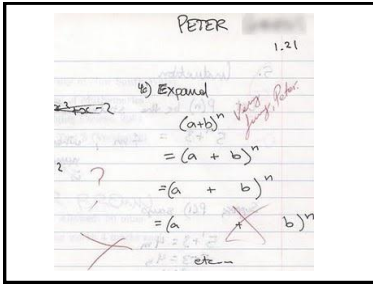 PETER
1.21
4c) Expand
(a+b)^n
Very funny, Peter.
= (a + b)^n
2
?
= (a + b)^n
= (a + b)^n
etc...